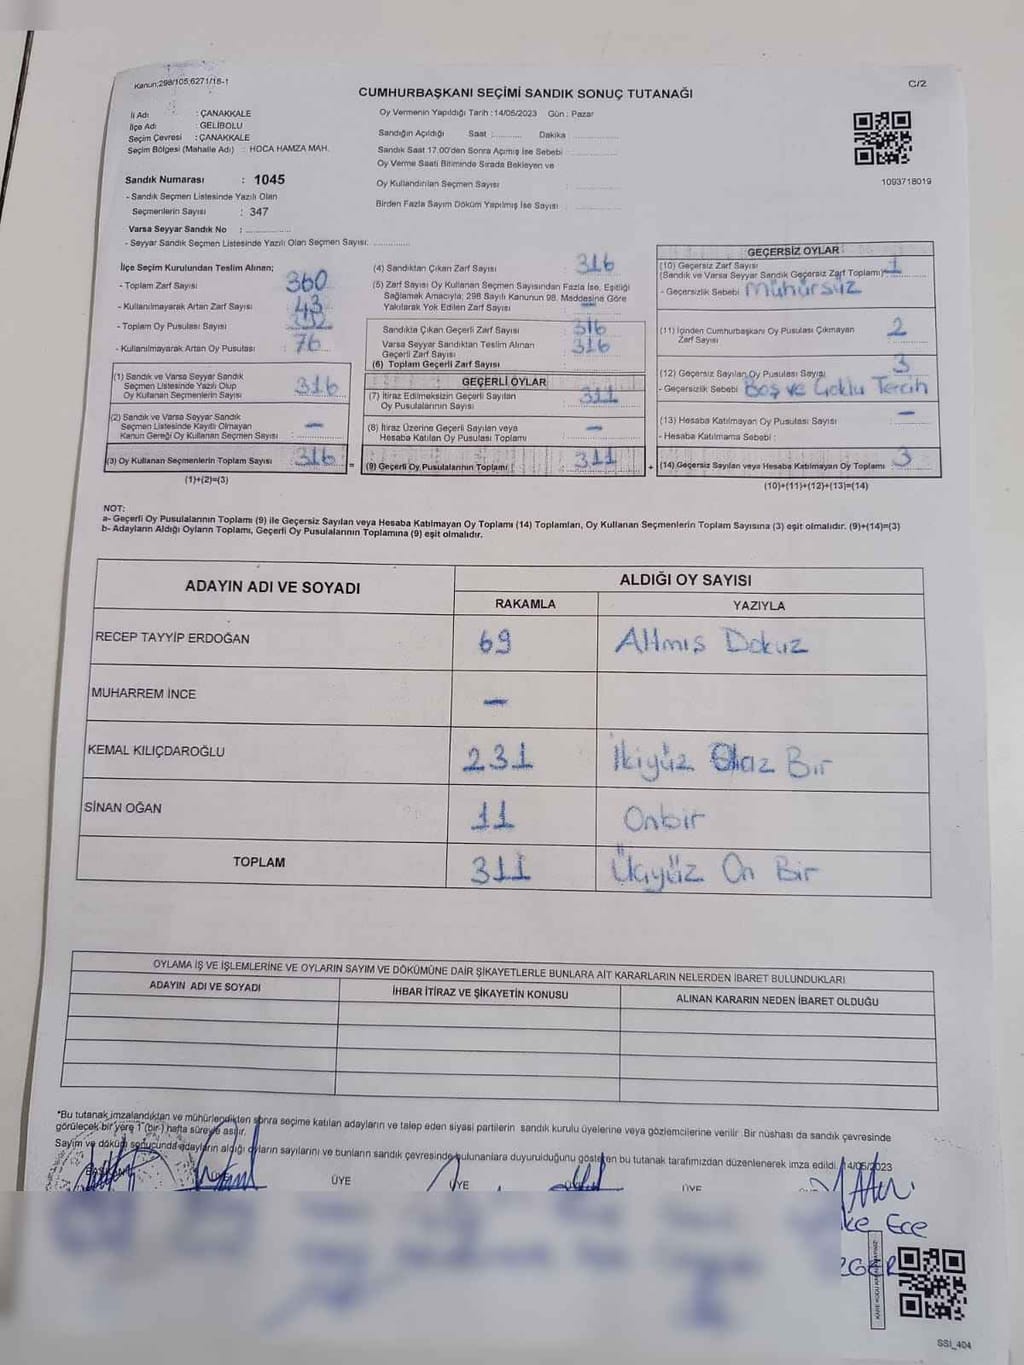 Kanun:298/105,6271/18-1
C/2
CUMHURBAŞKANI SEÇİMİ SANDIK SONUÇ TUTANAĞI
İl Adı : ÇANAKKALE
İlçe Adı : GELİBOLU
Seçim Çevresi : ÇANAKKALE
Seçim Bölgesi (Mahalle Adı) : HOCA HAMZA MAH.
Sandık Numarası : 1045
- Sandık Seçmen Listesinde Yazılı Olan
Seçmenlerin Sayısı : 347
Varsa Seyyar Sandık No :
- Seyyar Sandık Seçmen Listesinde Yazılı Olan Seçmen Sayısı:
Oy Vermenin Yapıldığı Tarih : 14/05/2023 Gün : Pazar
Sandığın Açıldığı Saat : Dakika :
Sandık Saat 17.00'den Sonra Açılmış İse Sebebi :
Oy Verme Saati Bitiminde Sırada Bekleyen ve
Oy Kullandırılan Seçmen Sayısı :
Birden Fazla Sayım Döküm Yapılmış İse Sayısı :
1093718019
İlçe Seçim Kurulundan Teslim Alınan;
- Toplam Zarf Sayısı : 360
- Kullanılmayarak Artan Zarf Sayısı : 43
- Toplam Oy Pusulası Sayısı :
- Kullanılmayarak Artan Oy Pusulası : 76
(1) Sandık ve Varsa Seyyar Sandık
Seçmen Listesinde Yazılı Olup
Oy Kullanan Seçmenlerin Sayısı : 316
(2) Sandık ve Varsa Seyyar Sandık
Seçmen Listesinde Kayıtlı Olmayan
Kanun Gereği Oy Kullanan Seçmen Sayısı : —
(3) Oy Kullanan Seçmenlerin Toplam Sayısı : 316
(1)+(2)=(3)
(4) Sandıktan Çıkan Zarf Sayısı : 316
(5) Zarf Sayısı Oy Kullanan Seçmen Sayısından Fazla İse, Eşitliği
Sağlamak Amacıyla; 298 Sayılı Kanunun 98. Maddesine Göre
Yakılarak Yok Edilen Zarf Sayısı : —
Sandıkta Çıkan Geçerli Zarf Sayısı : 316
Varsa Seyyar Sandıktan Teslim Alınan
Geçerli Zarf Sayısı : 316
(6) Toplam Geçerli Zarf Sayısı
GEÇERLİ OYLAR
(7) İtiraz Edilmeksizin Geçerli Sayılan
Oy Pusulalarının Sayısı : 311
(8) İtiraz Üzerine Geçerli Sayılan veya
Hesaba Katılan Oy Pusulası Toplamı : —
= (9) Geçerli Oy Pusulalarının Toplamı : 311
GEÇERSİZ OYLAR
(10) Geçersiz Zarf Sayısı
(Sandık ve Varsa Seyyar Sandık Geçersiz Zarf Toplamı) 1
- Geçersizlik Sebebi : Mühürsüz
(11) İçinden Cumhurbaşkanı Oy Pusulası Çıkmayan
Zarf Sayısı : 2
(12) Geçersiz Sayılan Oy Pusulası Sayısı : 3
- Geçersizlik Sebebi : Boş ve Çoklu Tercih
(13) Hesaba Katılmayan Oy Pusulası Sayısı : —
- Hesaba Katılmama Sebebi :
+ (14) Geçersiz Sayılan veya Hesaba Katılmayan Oy Toplamı : 3
(10)+(11)+(12)+(13)=(14)
NOT:
a- Geçerli Oy Pusulalarının Toplamı (9) ile Geçersiz Sayılan veya Hesaba Katılmayan Oy Toplamı (14) Toplamları, Oy Kullanan Seçmenlerin Toplam Sayısına (3) eşit olmalıdır. (9)+(14)=(3)
b- Adayların Aldığı Oyların Toplamı, Geçerli Oy Pusulalarının Toplamına (9) eşit olmalıdır.
ADAYIN ADI VE SOYADI
ALDIĞI OY SAYISI
RAKAMLA YAZIYLA
RECEP TAYYİP ERDOĞAN 69 Altmış Dokuz
MUHARREM İNCE —
KEMAL KILIÇDAROĞLU 231 İkiyüz Otuz Bir
SİNAN OĞAN 11 Onbir
TOPLAM 311 Üçyüz On Bir
OYLAMA İŞ VE İŞLEMLERİNE VE OYLARIN SAYIM VE DÖKÜMÜNE DAİR ŞİKAYETLERLE BUNLARA AİT KARARLARIN NELERDEN İBARET BULUNDUKLARI
ADAYIN ADI VE SOYADI İHBAR İTİRAZ VE ŞİKAYETİN KONUSU ALINAN KARARIN NEDEN İBARET OLDUĞU
*Bu tutanak imzalandıktan ve mühürlendikten sonra seçime katılan adayların ve talep eden siyasi partilerin sandık kurulu üyelerine veya gözlemcilerine verilir. Bir nüshası da sandık çevresinde
görülecek bir yere 1 (bir) hafta süreyle asılır.
Sayım ve döküm sonucunda adayların aldığı oyların sayılarını ve bunların sandık çevresinde bulunanlara duyurulduğunu gösteren bu tutanak tarafımızdan düzenlenerek imza edildi. 14/05/2023
BAŞKAN ÜYE ÜYE ÜYE
Ece
SSİ_404